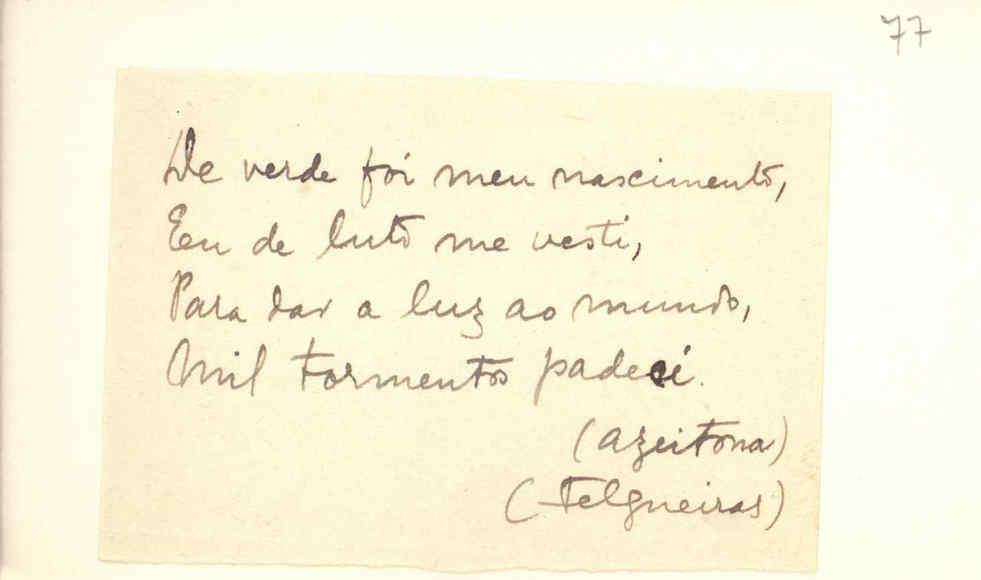 77
De verde foi meu nascimento,
Eeu de luto me vesti,
Para dar a luz ao mundo,
Mil tormentos padeci.
(azeitona)
(Felgueiras)